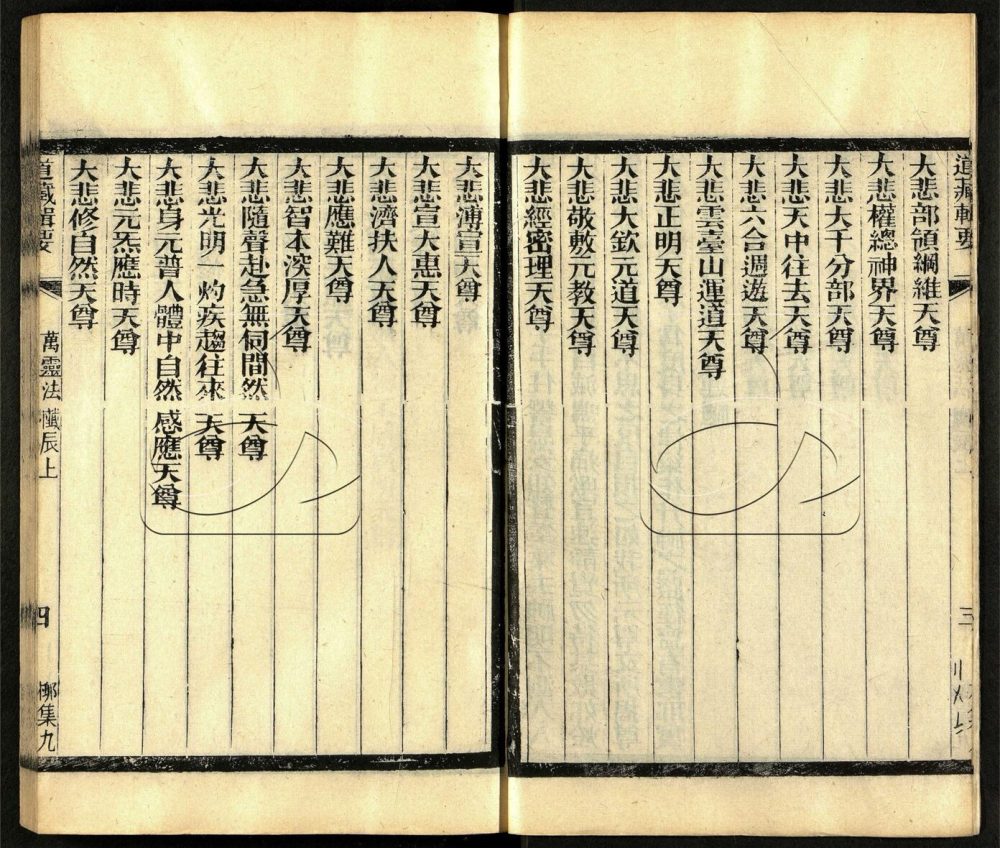 道藏輯要
三
大悲部領綱維天尊
大悲權總神界天尊
大悲大千分部天尊
大悲天中往去天尊
大悲六合週遊天尊
大悲雲臺山運道天尊
大悲正明天尊
大悲大欽元道天尊
大悲敬敷元教天尊
大悲經密理天尊
大悲溥宣天尊
大悲宣大惠天尊
大悲濟扶人天尊
大悲應難天尊
大悲智本深厚天尊
大悲隨聲赴急無伺間然天尊
大悲光明一灼疾趨往來天尊
大悲身元普人體中自然感應天尊
大悲元炁應時天尊
大悲修自然天尊
道藏輯要
萬靈法懺辰上
四
柳集九